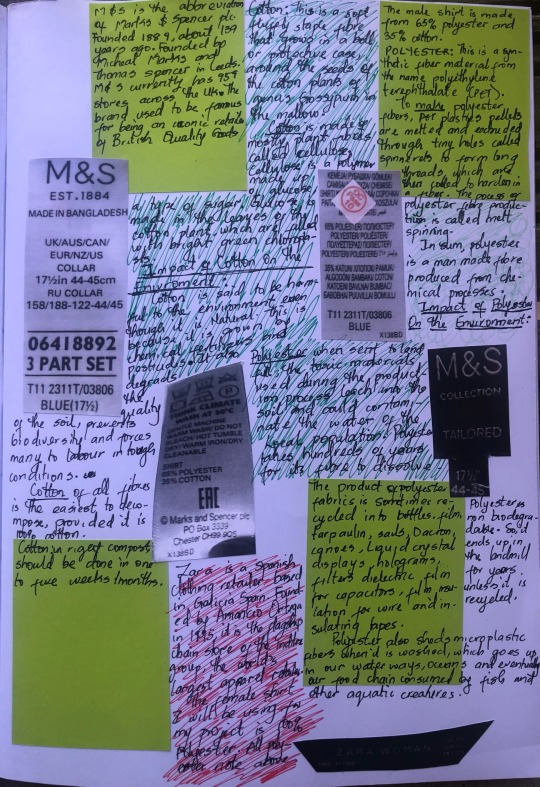 M&S is the abbreviation
of Marks & Spencer plc.
Founded 1884, about 137
years ago. Founded by
Micheal Marks and
Thomas Spencer in Leeds.
M&S currently has 959
stores across the UK. The
brand used to be famous
for being an iconic retailer
of British Quality Goods
Cotton: This is a soft
fluffy staple fibre
that grows in a boll
or protective case,
around the seeds of
the cotton plants of
genus gossypium in
the mallows
Cotton is made is
mostly plant fibres
called cellulose.
Cellulose is a polymer
made up
of glucose,
a type of sugar. Glucose is
made in the leaves of the
cotton plant, which are filled
with bright green chloropla-
sts.
Impact of Cotton On the
Enviroment:
Cotton is said to be harm-
ful to the environment even
though it is Natural. This is
because it is grown by
chemical fertilizers and
pesticides. It also
degrads
the
quality
of the soil, prevents
biodiversity and forces
many to labour in tough
conditions.
Cotton of all fibres
is the easiest to deco-
mpose, provided it is
100% cotton.
Cotton in right compost
should be done in one
to five weeks/months.
The male shirt is made
from 65% polyester and
35% cotton.
POLYESTER: This is a syn-
thetic fiber material from
the name polyethylene
terephthalate (PET).
To make polyester
fibers, PET plastics pellets
are melted and extruded
through tiny holes called
spinnerets to form long
threads, which are
then cooled to harden in
a fiber. The process of
polyester fibre produc-
tion is called melt
spinning.
In sum, polyester
is a man made fibre
produced from che-
mical processes.
Impact of Polyester
On the Environment:
Polyester when sent to land
fill, the toxic materials
used during the produc-
tion process leach into the
soil and could contami-
nate the water of the
local population. Polyester
takes hundreds of years
for its fibre to dissolve
The product of polyester
fabrics is sometimes re-
cycled into bottles, film,
tarpaulin, sails, Dacron,
canoes, Liquid crystal
displays, holograms,
filters dielectric film
for capacitors, film insu-
lation for wire and in-
sulating tapes.
Polyester is
non biodegra-
dable. So it
ends up in
the landfill
for years
unless it is
recycled.
Polyester also sheds microplastic
fibers when it is washed, which goes up
in our waterways, oceans and eventually
our food chain consumed by fish and
other aquatic creatures.
Zara is a Spanish
clothing retailer based
in Galicia Spain. Found-
ed by Amancio Ortega
in 1975, it is the flagship
chain store of the Inditex
group, the world's
largest apparel retailer.
The female shirt
I will be using for
my project is 100%
Polyester.
M&S
EST.1884
MADE IN BANGLADESH
UK/AUS/CAN/
EUR/NZ/US
COLLAR
17½in 44-45cm
RU COLLAR
158/188-122-44/45
06418892
3 PART SET
T11 2311T/03806
BLUE(17½)
35% KATUN/ ХЛОПОК/ PAMUK/
T11 2311T/03806
BLUE
X138BD
M&S
COLLECTION
TAILORED
17½"
THINK CLIMATE
WASH AT 30°C
SHIRT
65% POLYESTER
35% COTTON
EAC
© Marks and Spencer plc
PO Box 3339
Chester CH99 9QS
X138BD
ZARA WOMAN